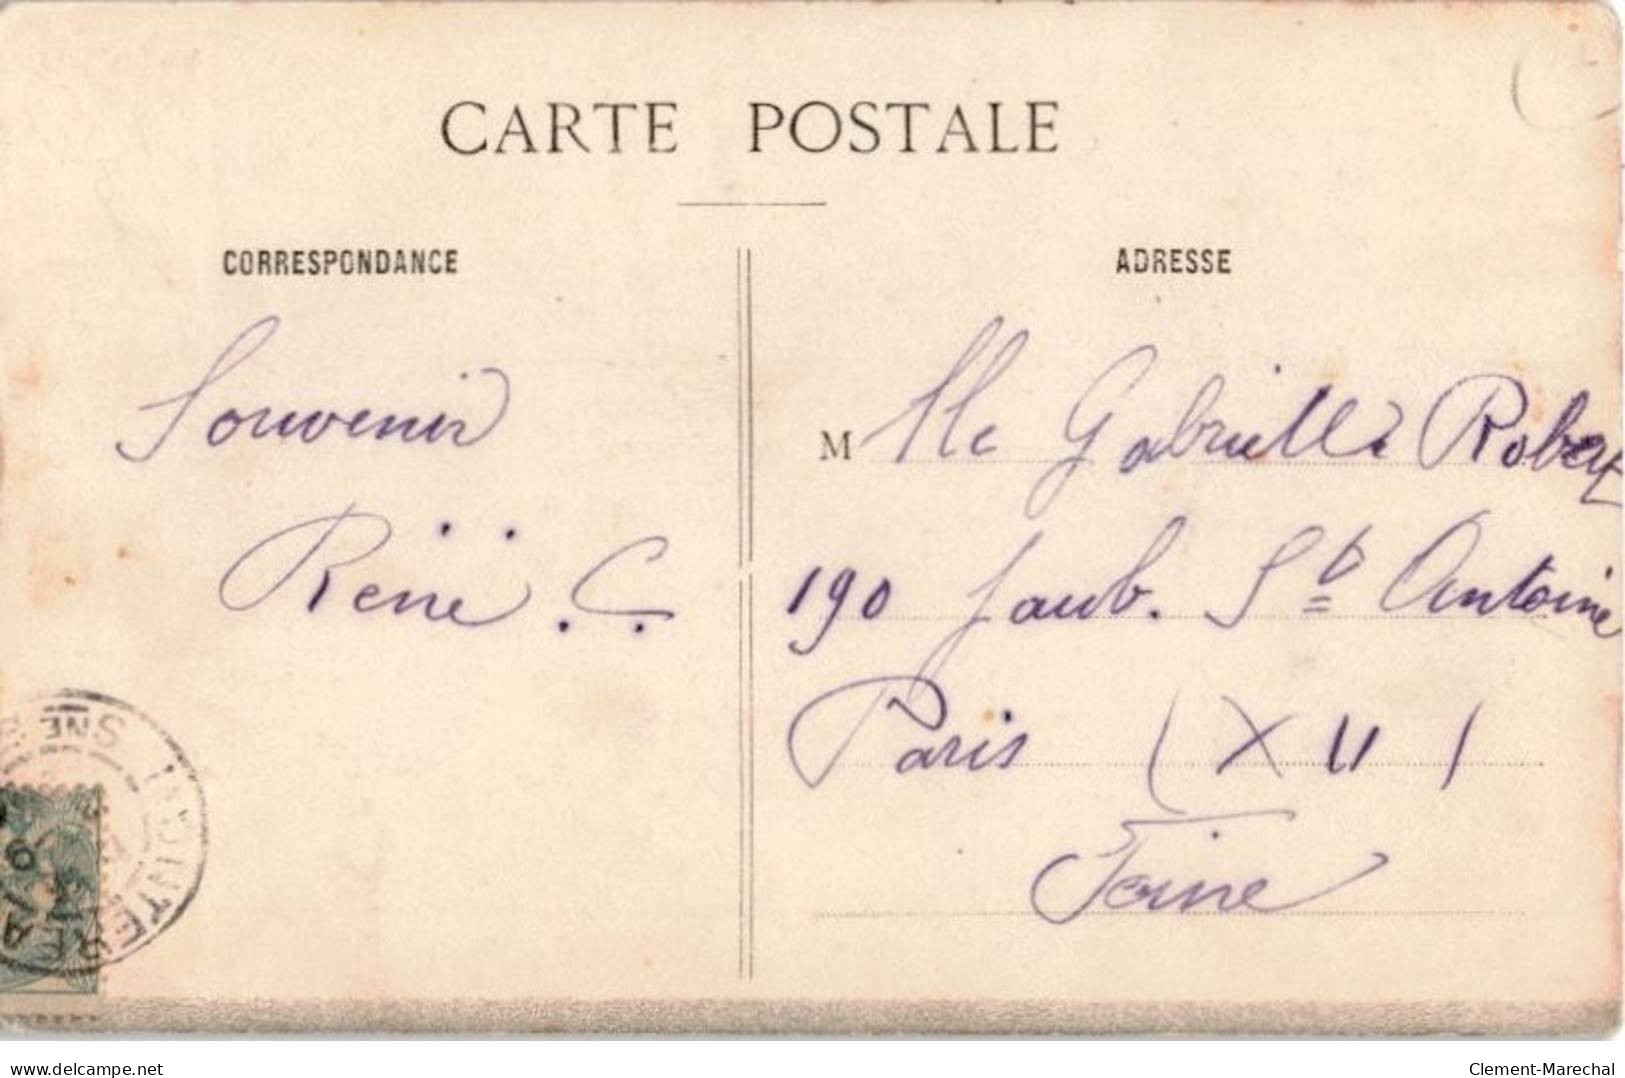 CARTE POSTALE
CORRESPONDANCE
Souvenir
René. C.
ADRESSE
Mlle Gabrielle Robert
190 faub. St Antoine
Paris (XII)
Seine
SNE
delcampe.net
Clement-Marechal